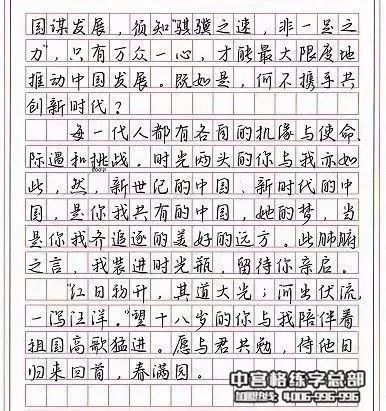 国谋发展，须知“骐骥之速，非一足之
力”，只有万众一心，才能最大限度地
推动中国发展。既如是，何不携手共
创新时代？
每一代人都有各自的机缘与使命、
际遇和挑战，时光两头的你与我亦如
此，然，新世纪的中国、新时代的中
国，是你我共有的中国，她的梦，当
是你我齐追逐的美好的远方。此肺腑
之言，我装进时光瓶，留待你亲启。
“红日初升，其道大光；河出伏流，
一泻汪洋。”望十八岁的你与我陪伴着
祖国高歌猛进。愿与君共勉，待他日
归来回首，春满园。
中宫格练字总部
加盟热线：4006-996-996